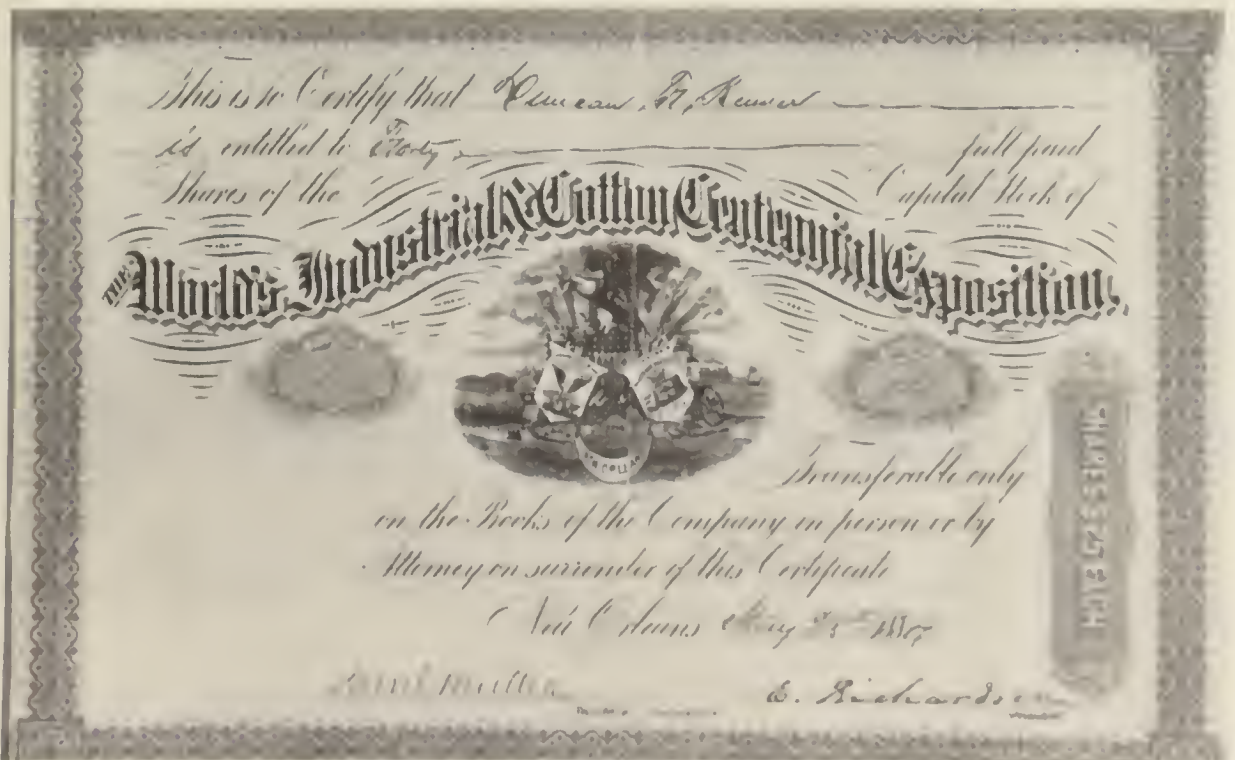 This is to Certify that Duncan F. Kenner
is entitled to Forty full paid
Shares of the Capital Stock of
THE World's Industrial & Cotton Centennial Exposition,
Transferable only
on the Books of the Company in person or by
Attorney on surrender of this Certificate
New Orleans May
E. Richardson
SHARES $25 EACH